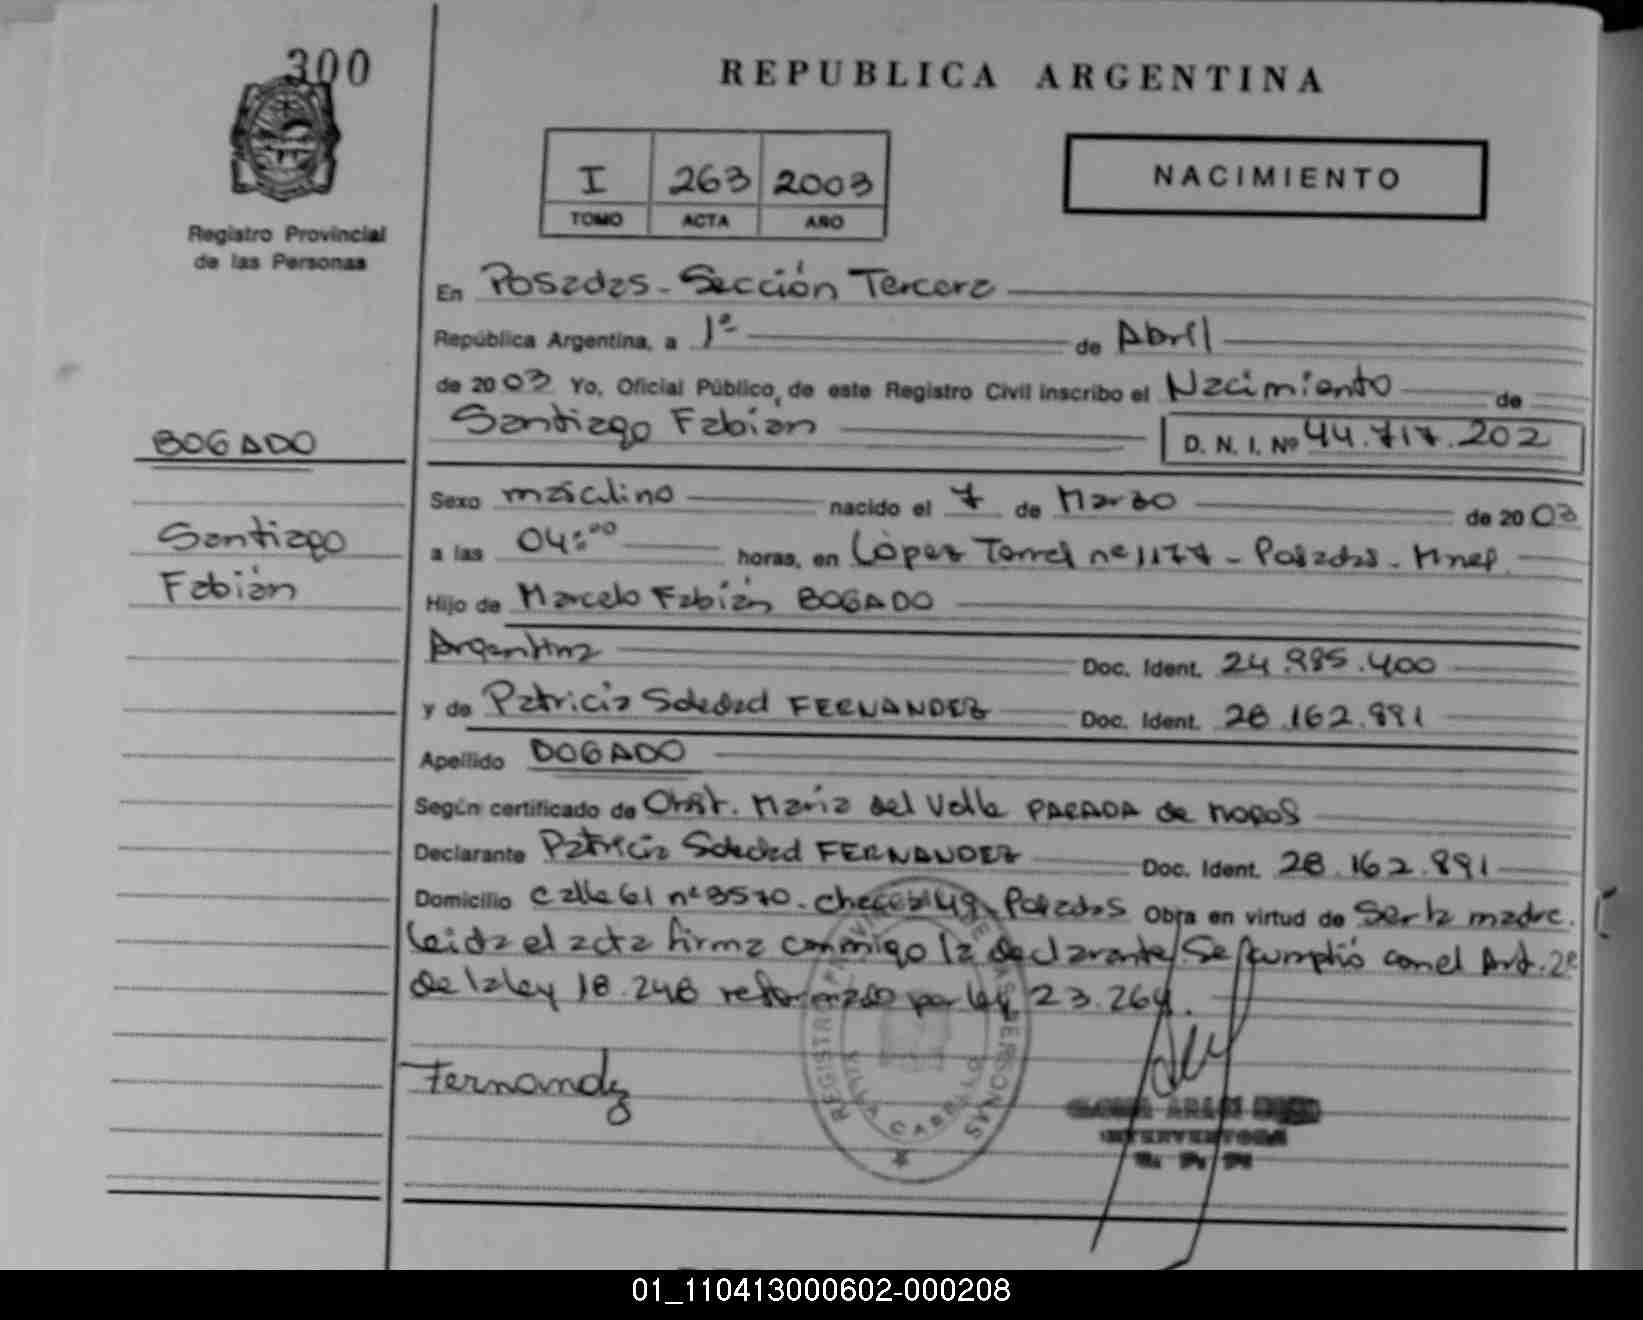 300
REPUBLICA ARGENTINA
I 263 2003
TOMO ACTA AÑO
NACIMIENTO
Registro Provincial
de las Personas
En Posadas - Sección Tercera
República Argentina, a 1º de Abril
de 2003 Yo, Oficial Público, de este Registro Civil inscribo el Nacimiento de
Santiago Fabián D. N. I. Nº 44.717.202
BOGADO
Santiago
Fabián
Sexo masculino nacido el 7 de Marzo de 2003
a las 04:00 horas, en López Torres nº 1177 - Posadas - Mnes.
Hijo de Marcelo Fabián BOGADO
Argentina Doc. Ident. 24.985.400
y de Patricia Soledad FERNANDEZ Doc. Ident. 28.162.891
Apellido BOGADO
Según certificado de Obst. María del Valle PARADA de MOROS
Declarante Patricia Soledad FERNANDEZ Doc. Ident. 28.162.891
Domicilio Calle 61 nº 3570 - Chacra 149 - Posadas Obra en virtud de Ser la madre.
Leída el acta firma conmigo la declarante. Se cumplió con el Art. 2º
de la ley 18.248 reformado por ley 23.264.
Fernandez
REGISTRO PROVINCIAL DE LAS PERSONAS
VILLA CABELLO
INTERVENTORA
01_110413000602-000208